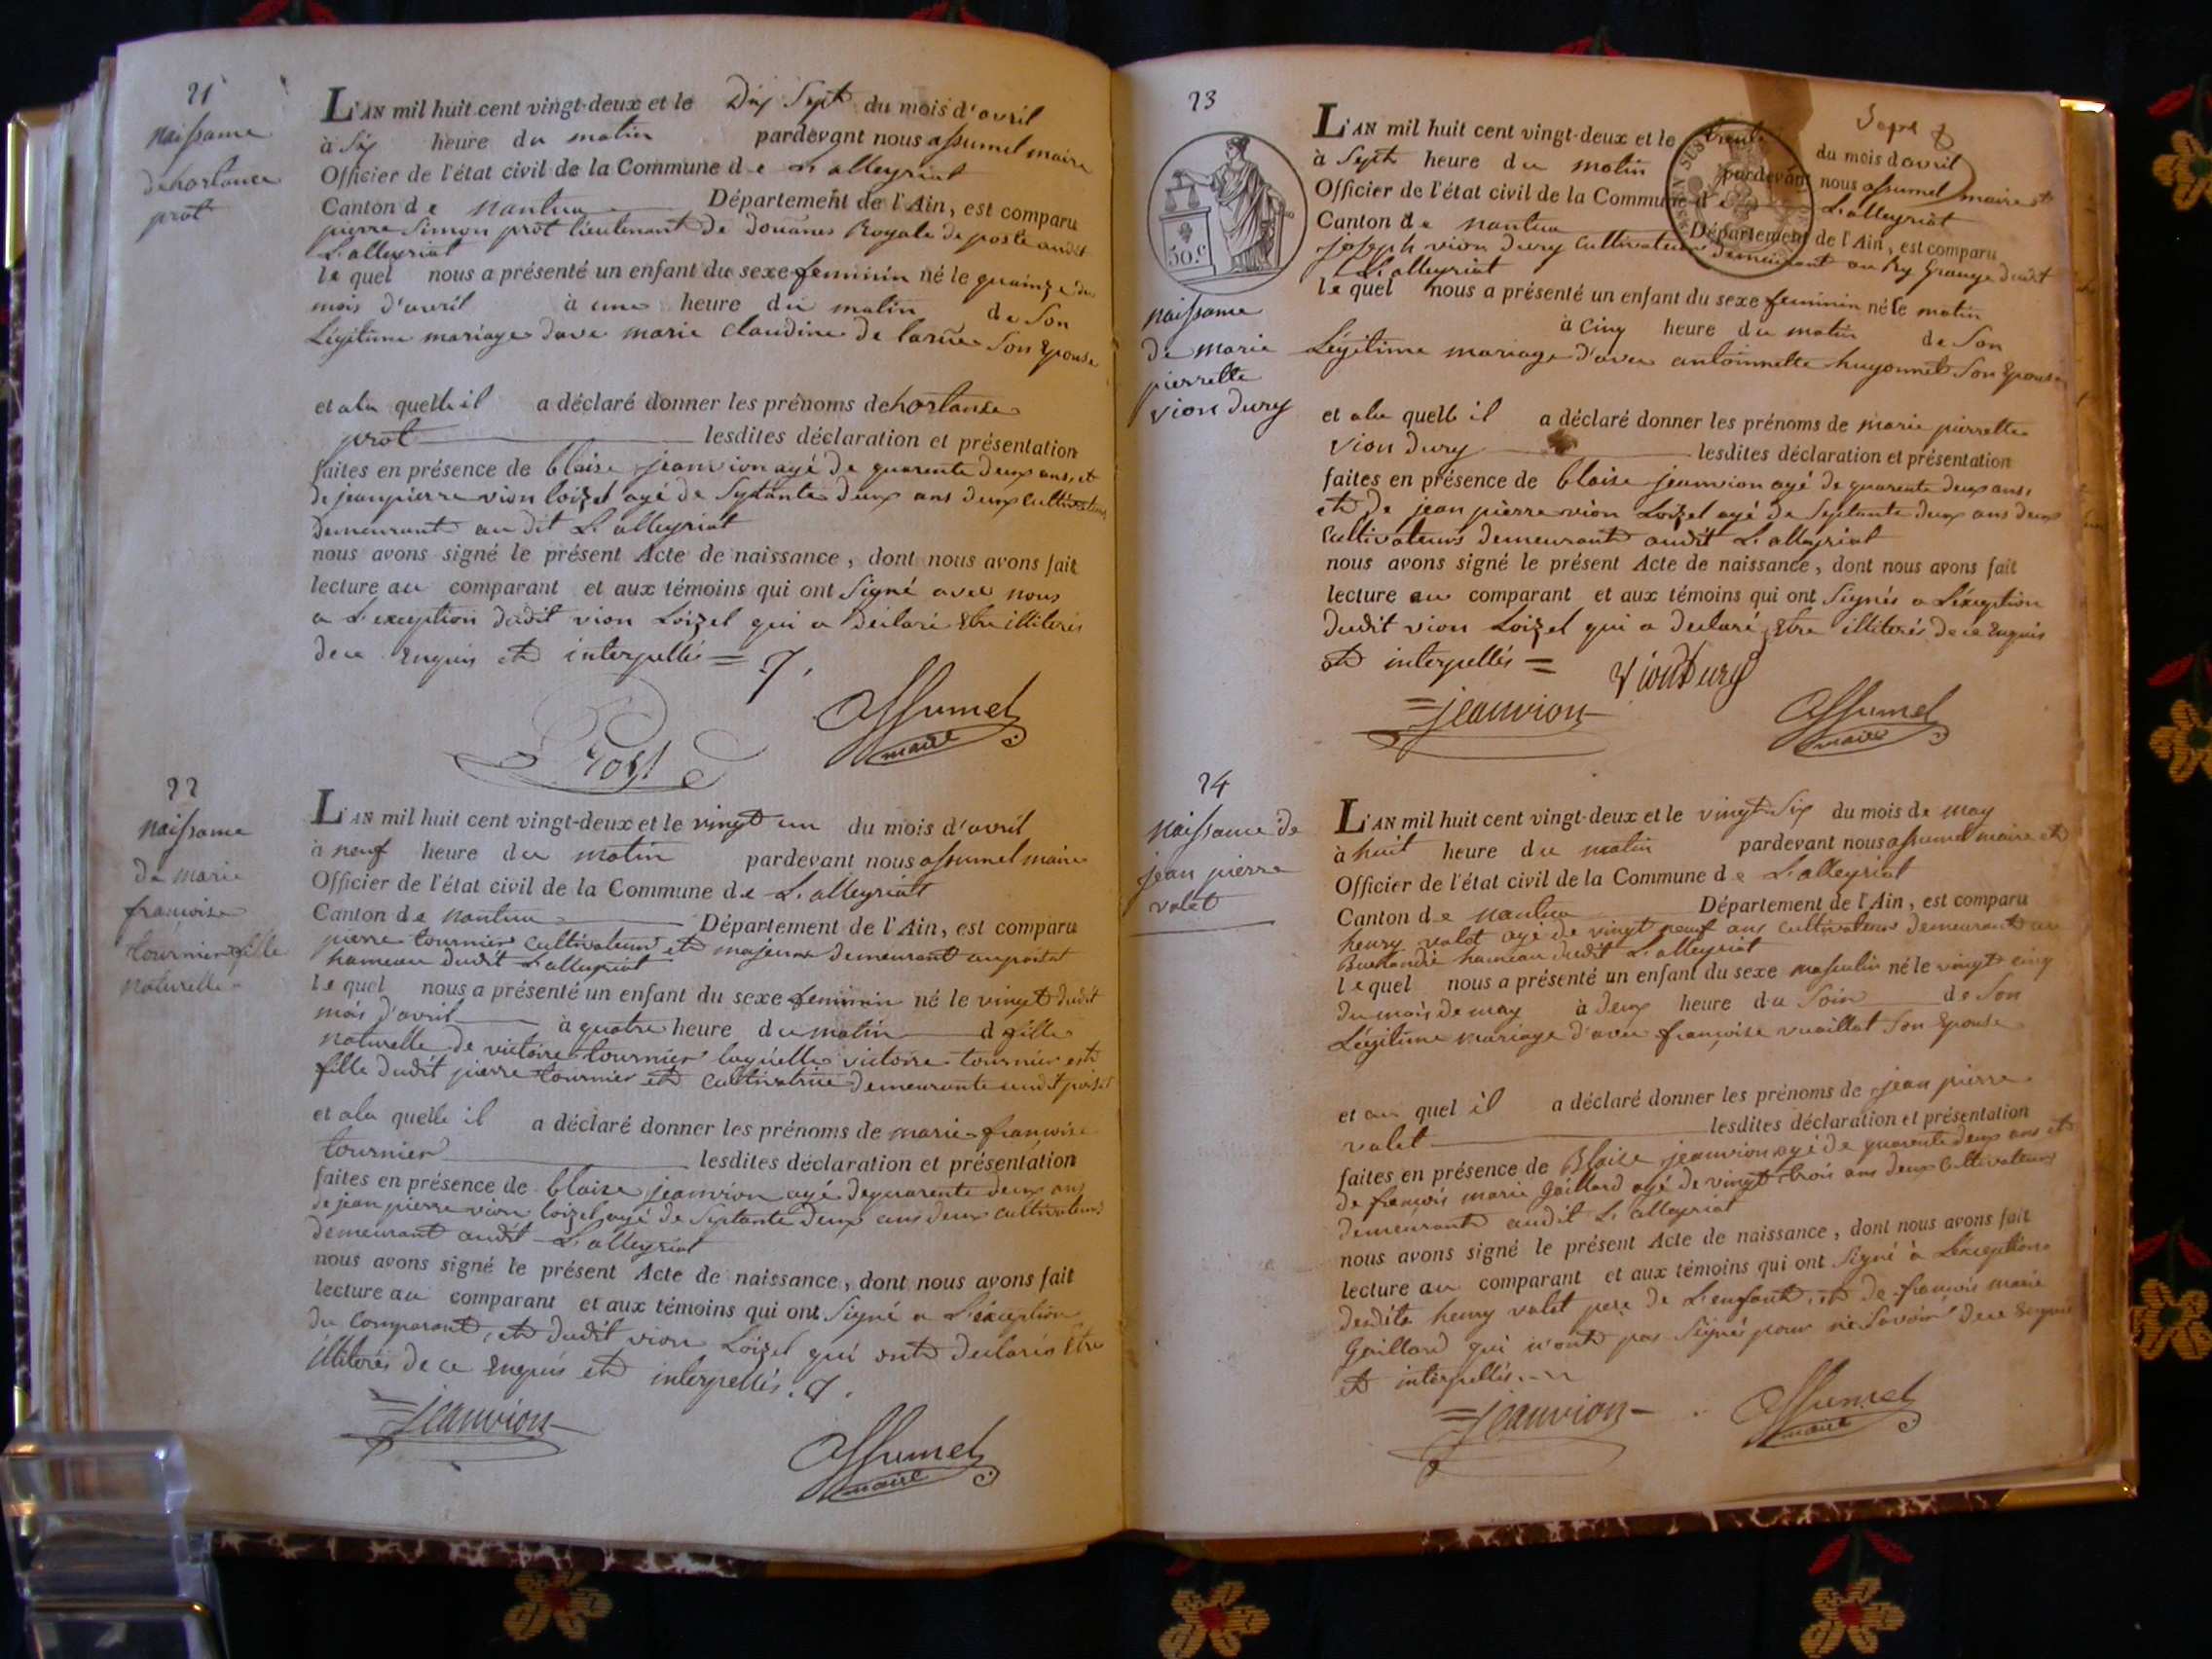 21
naissance
de hortance
prot
L'AN mil huit cent vingt-deux et le Dix Sept du mois d'avril
à Six heure du matin pardevant nous assumel maire
Officier de l'état civil de la Commune de L'alleyriat
Canton de nantua Département de l'Ain, est comparu
pierre Simon prot lieutenant de Douanes Royale de poste audit
L'alleyriat
le quel nous a présenté un enfant du sexe feminin né le quinze du
mois d'avril à une heure du matin de Son
Légitime mariage davec marie Claudine de larüe Son Epouse
et ala quelle il a déclaré donner les prénoms de hortanse
prot lesdites déclaration et présentation
faites en présence de blaise jeanvion agé de quarente deux ans, et
de jean pierre vion loizel agé de Septante deux ans deux Cultivateurs
demeurant au dit L'alleyriat
nous avons signé le présent Acte de naissance, dont nous avons fait
lecture au comparant et aux témoins qui ont Signé avec nous
a L'exception dudit vion Loizel qui a déclaré Etre illiterés
de ce Enquis et interpellés =
Prost
assumel
maire
22
naissance
de marie
francoise
tournier fille
naturelle
L'AN mil huit cent vingt-deux et le vingt un du mois d'avril
à neuf heure du matin pardevant nous assumel maire
Officier de l'état civil de la Commune de L'alleyriat
Canton de nantua Département de l'Ain, est comparu
pierre tournier cultivateur et majeur demeurant au poizat
hameau dudit L'alleyriat
le quel nous a présenté un enfant du sexe feminin né le vingt dudit
mois d'avril à quatre heure du matin d fille
naturelle de victoire tournier laquelle victoire tournier est
fille dudit pierre tournier et Cultivatrice demeurante audit poizat
et ala quelle il a déclaré donner les prénoms de marie francoise
tournier lesdites déclaration et présentation
faites en présence de blaize jeanvion agé de quarente deux ans
de jean pierre vion loizel agé de Septante deux ans deux cultivateurs
demeurant audit L'alleyriat
nous avons signé le présent Acte de naissance, dont nous avons fait
lecture au comparant et aux témoins qui ont Signé a L'éxception
du Comparant, et dudit vion Loizel qui ont declarés Etre
illiterés de ce Enquis et interpellés.
=jeanvion
assumel
maire
23
50.c
naissance
de marie
pierrette
vion dury
L'AN mil huit cent vingt-deux et le trente du mois davril
à Sept heure du matin pardevant nous assumel maire et
Officier de l'état civil de la Commune de L'alleyriat
Canton de nantua Département de l'Ain, est comparu
joseph vion dury Cultivateur demeurant au Grange dudit
L'alleyriat
le quel nous a présenté un enfant du sexe feminin né le matin
à Cinq heure du matin de Son
Légitime mariage d'avec antoinnette hugonnet Son Epouse
et ala quelle il a déclaré donner les prénoms de marie pierrette
vion dury lesdites déclaration et présentation
faites en présence de blaise jeanvion agé de quarente deux ans,
et de jean pièrre vion Loizel agé de Septante deux ans deux
Cultivateurs demeurant audit L'alleyriat
nous avons signé le présent Acte de naissance, dont nous avons fait
lecture au comparant et aux témoins qui ont Signés a L'éxception
dudit vion Loizel qui a declaré Etre illiterés de ce Enquis
et interpellés =
vionDury
=jeanvion
assumel
maire
24
naissance de
jean pierre
valet
L'AN mil huit cent vingt-deux et le vingt Six du mois de may
à huit heure du matin pardevant nous assumel maire et
Officier de l'état civil de la Commune de L'alleyriat
Canton de nantua Département de l'Ain, est comparu
henry valet agé de vingt neuf ans cultivateur demeurant au
hameau dudit L'alleyriat
le quel nous a présenté un enfant du sexe masculin né le vingt cinq
du mois de may à deux heure du Soir de Son
Légitime mariage d'avec francoise vuaillat Son Epouse
et au quel il a déclaré donner les prénoms de jean pierre
valet lesdites déclaration et présentation
faites en présence de Blaize jeanvion agé de quarente deux ans et
de francois marie Gaillard agé de vingt trois ans deux Cultivateurs
demeurant audit L'alleyriat
nous avons signé le présent Acte de naissance, dont nous avons fait
lecture au comparant et aux témoins qui ont Signé à L'exception
desdits henry valet pere de L'enfant, et de francois marie
Gaillard qui n'ont pas Signés pour ne Savoir de ce Enquis
et interpellés.
=jeanvion
assumel
maire